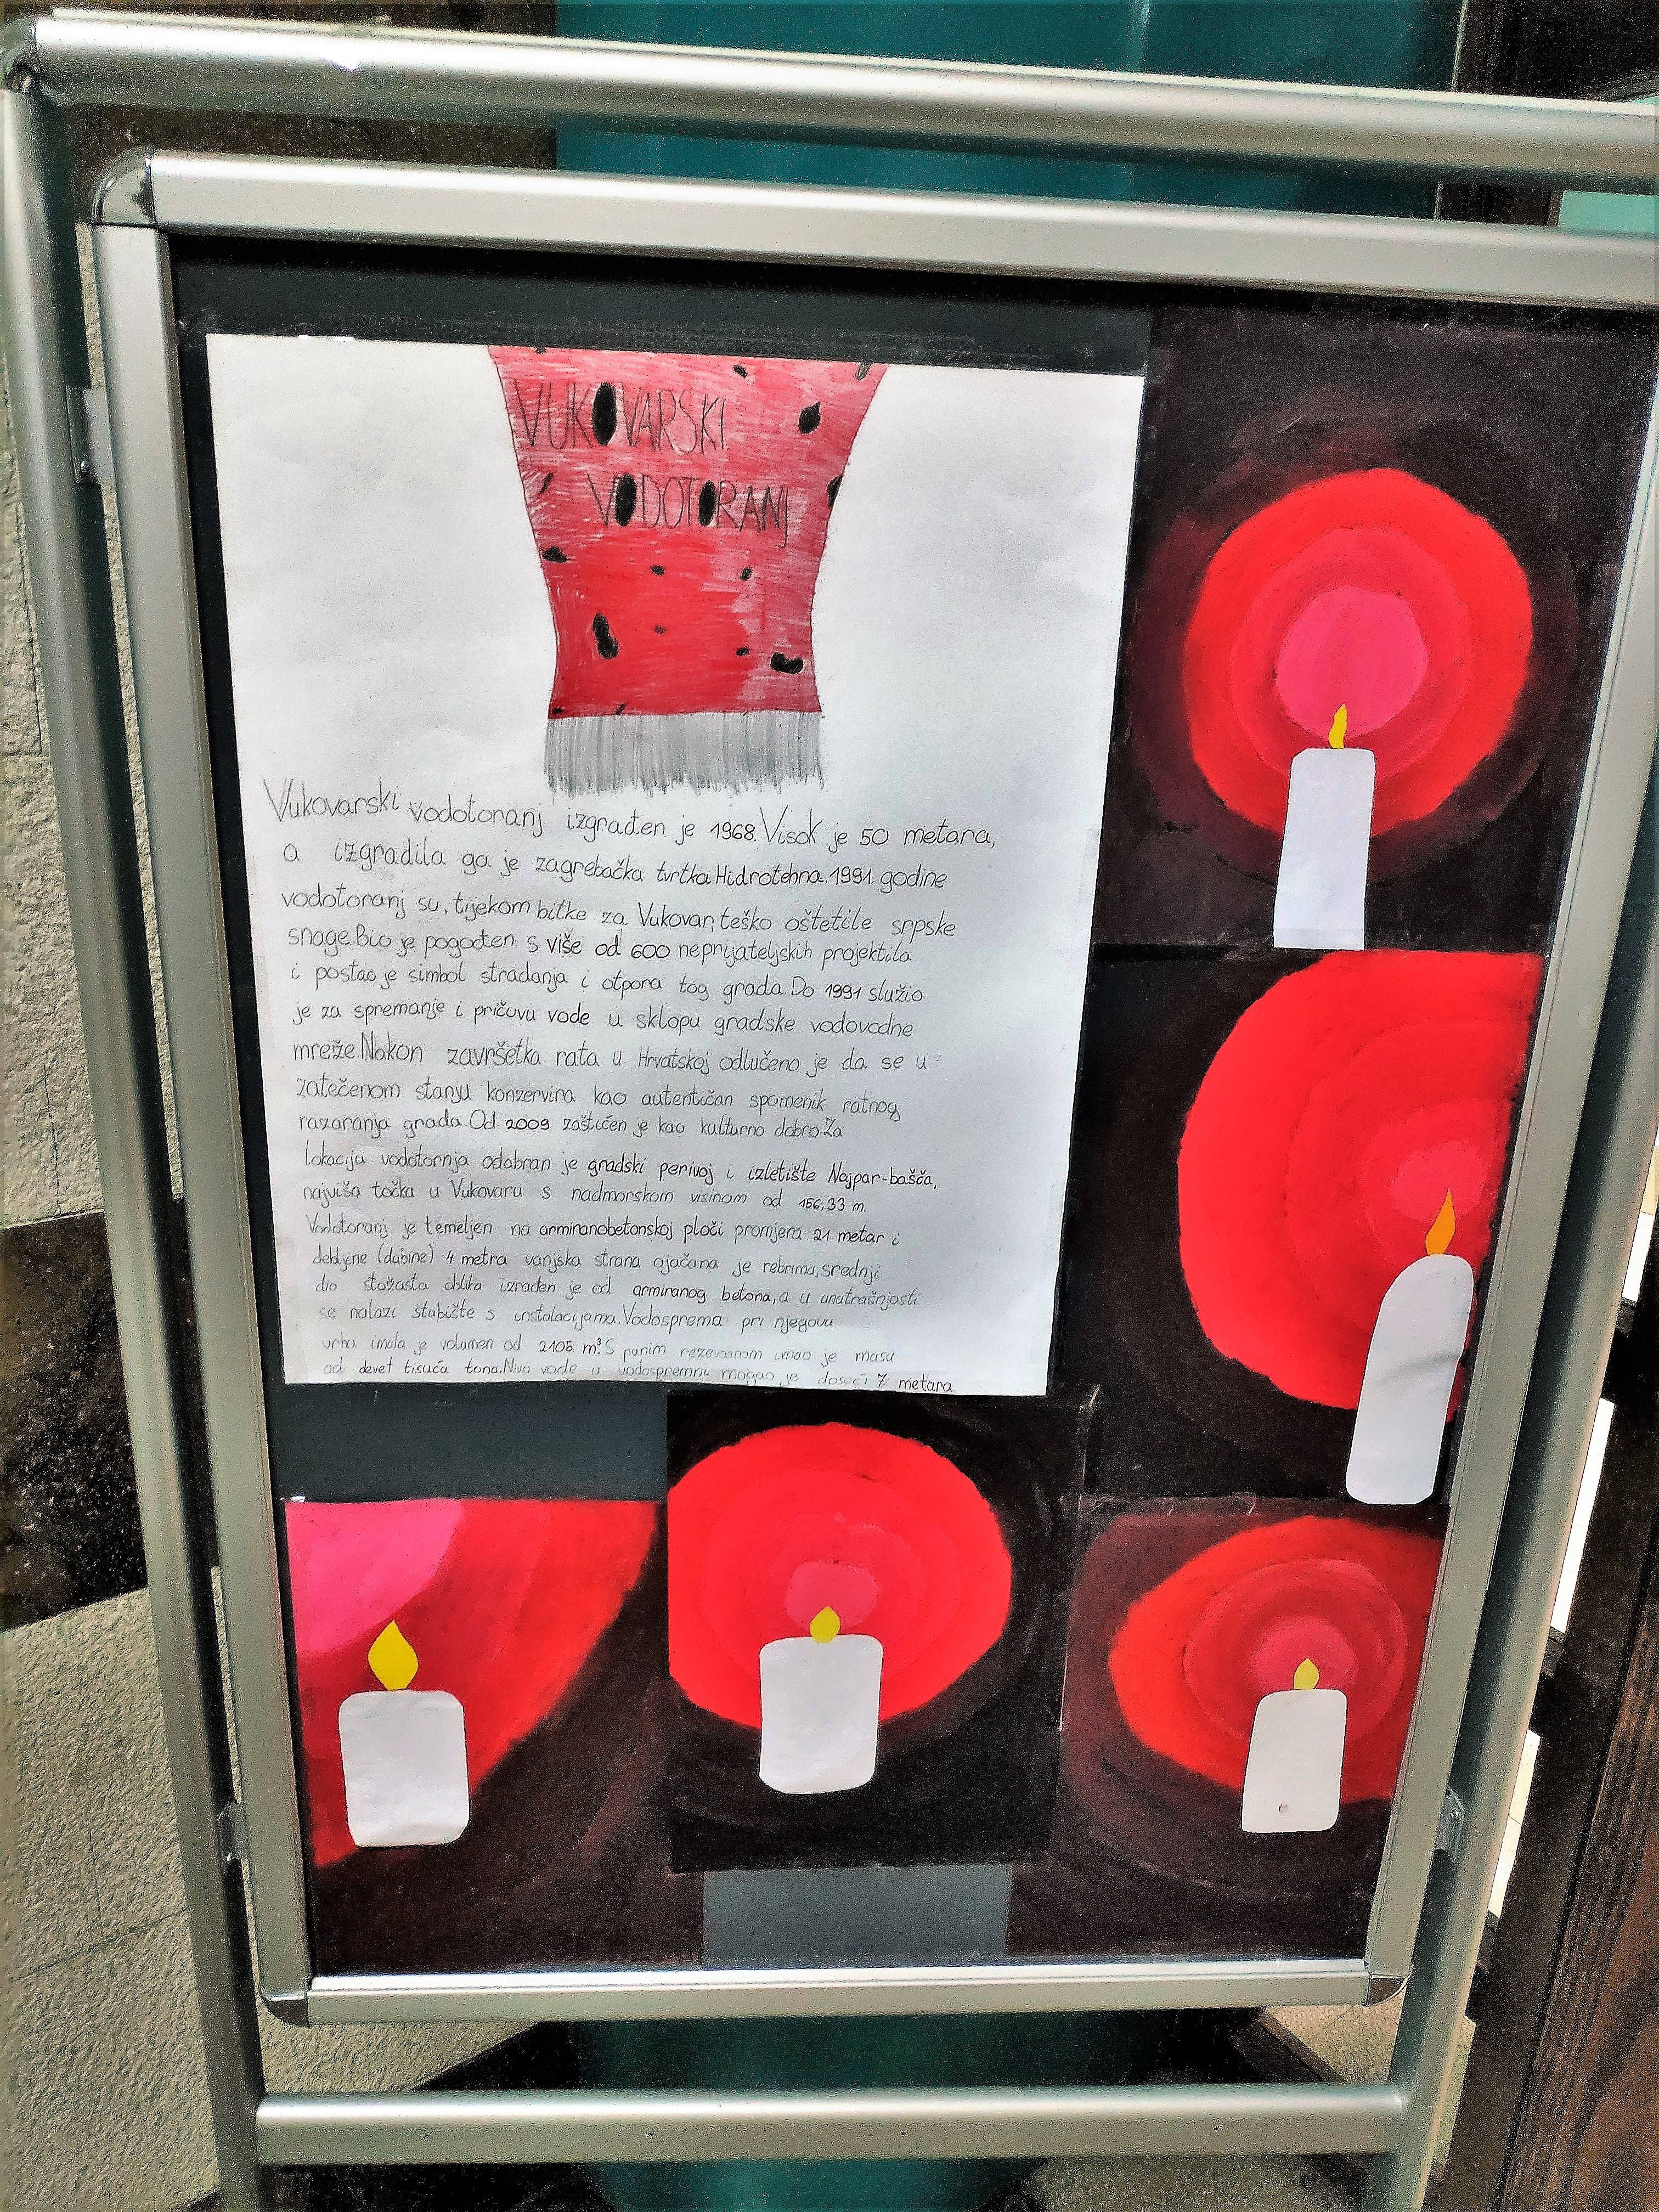 VUKOVARSKI
VODOTORANJ
Vukovarski vodotoranj izgrađen je 1968. Visok je 50 metara,
a izgradila ga je zagrebačka tvrtka Hidrotehna. 1991. godine
vodotoranj su, tijekom bitke za Vukovar, teško oštetile srpske
snage. Bio je pogođen s više od 600 neprijateljskih projektila
i postao je simbol stradanja i otpora tog grada. Do 1991 služio
je za spremanje i pričuvu vode u sklopu gradske vodovodne
mreže. Nakon završetka rata u Hrvatskoj odlučeno je da se u
zatečenom stanju konzervira kao autentičan spomenik ratnog
razaranja grada. Od 2009 zaštićen je kao kulturno dobro. Za
lokaciju vodotornja odabran je gradski perivoj i izletište Najpar-bašča,
najviša točka u Vukovaru s nadmorskom visinom od 156,33 m.
Vodotoranj je temeljen na armiranobetonskoj ploči promjera 21 metar i
debljine (dubine) 4 metra vanjska strana ojačana je rebrima, srednji
dio stožasta oblika izrađen je od armiranog betona, a u unutrašnjosti
se nalazi stubište s instalacijama. Vodosprema pri njegovu
vrhu imala je volumen od 2105 m³. S punim rezervoarom imao je masu
od devet tisuća tona. Nivo vode u vodospremi mogao je doseći 7 metara.